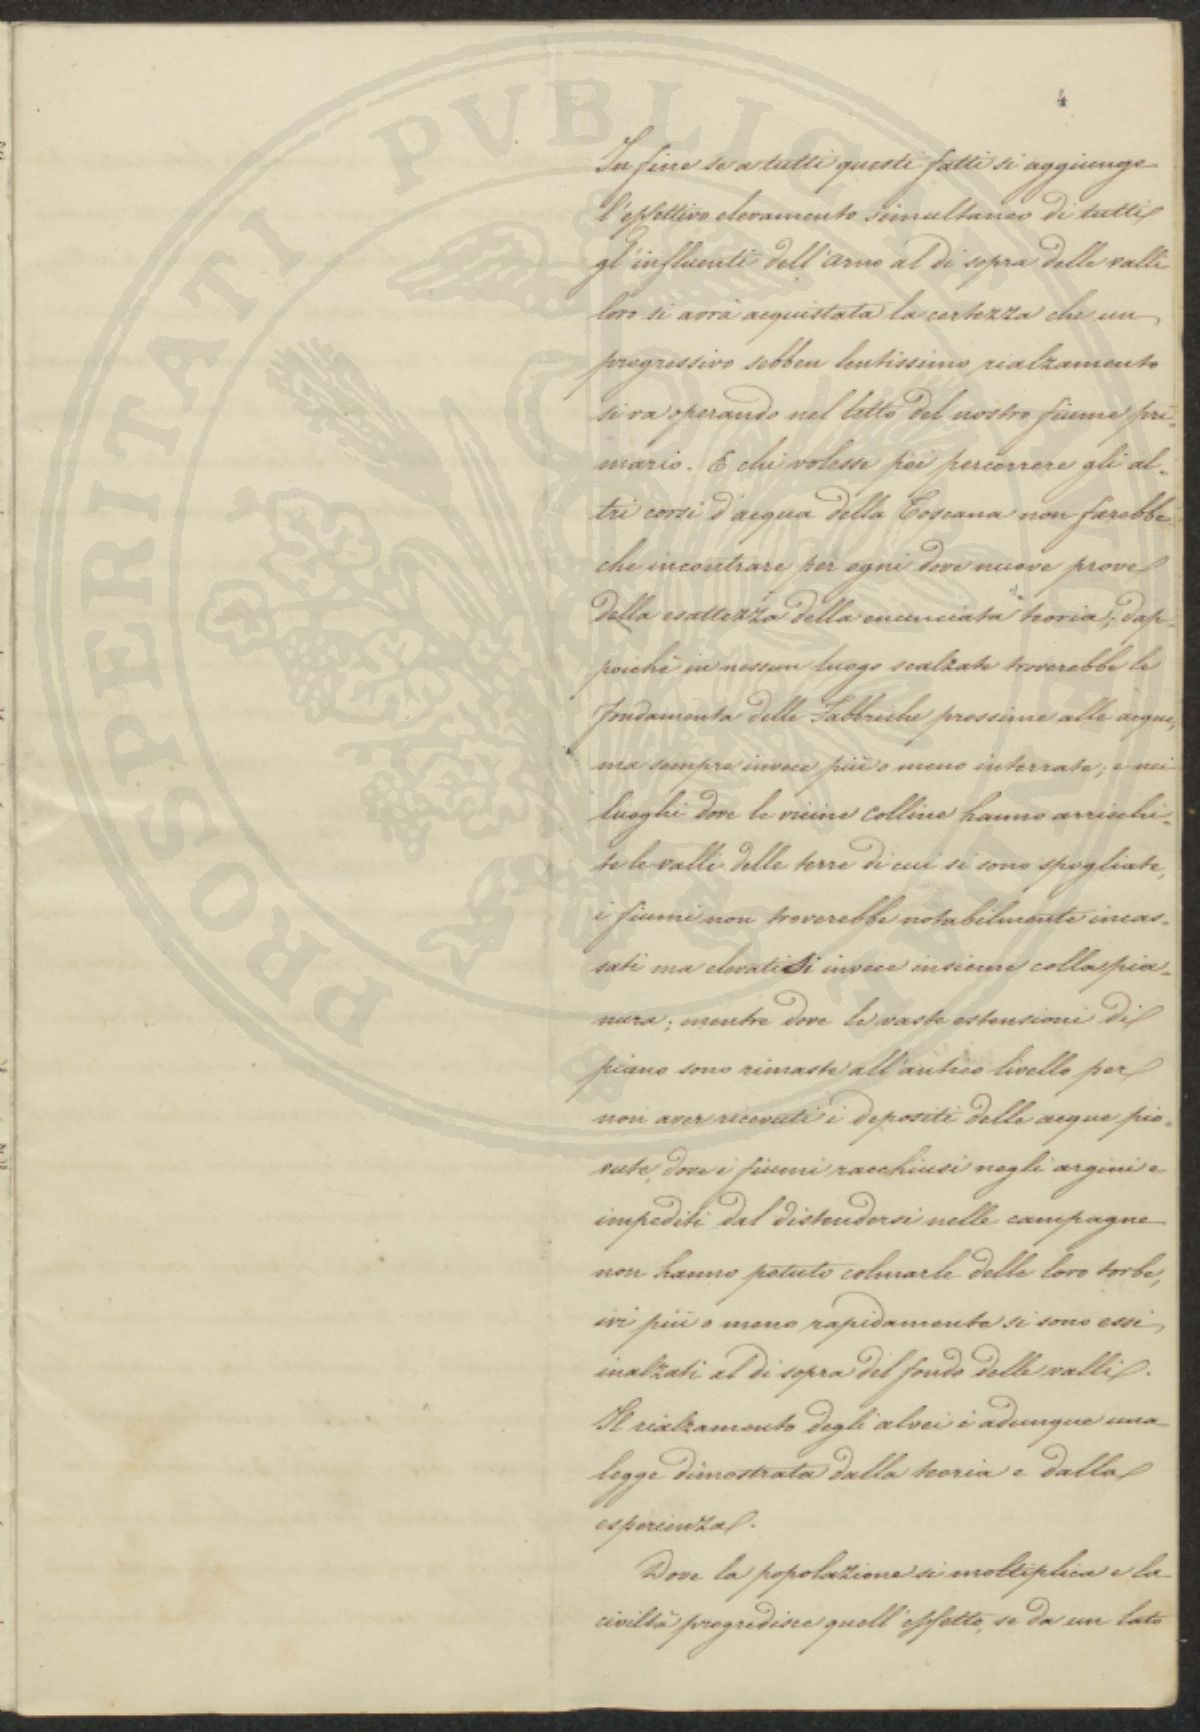 4
In fine se a tutti questi fatti si aggiunge
l'effettivo elevamento simultaneo di tutti
gl'influenti dell'Arno al di sopra delle valli
loro si avrà acquistata la certezza che un
progressivo sebben lentissimo rialzamento
si va operando nel letto del nostro fiume pri-
mario. E chi volesse poi percorrere gli al-
tri corsi d'acqua della Toscana non farebbe
che incontrare per ogni dove nuove prove
della esattezza della enunciata teoria; dap-
poichè in nessun luogo scalzate troverebbe le
fondamenta delle Fabbriche prossime alle acque,
ma sempre invece più o meno interrate; e nei
luoghi dove le vicine colline hanno arricchi-
te le valli delle terre di cui si sono spogliate,
i fiumi non troverebbe notabilmente incas-
sati ma elevatisi invece insieme colla pia-
nura; mentre dove le vaste estensioni di
piano sono rimaste all'antico livello per
non aver ricevuti i depositi delle acque pio-
vute, dove i fiumi racchiusi negli argini e
impediti dal distendersi nelle campagne
non hanno potuto colmarle delle loro torbe,
ivi più o meno rapidamente si sono essi
inalzati al di sopra del fondo delle valli.
Il rialzamento degli alvei è adunque una
legge dimostrata dalla teoria e dalla
esperienza.
Dove la popolazione si moltiplica e la
civiltà progredisce quell'effetto, se da un lato
PROSPERITATI PVBLICAE AVGENDAE